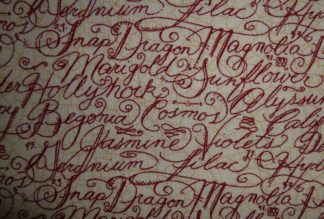 Geranium Lilac Hyd
Snap Dragon Magnolia
Marigold Sunflower
Hollyhock Alyssum
Begonia Cosmos
Jasmine Violets
Geranium Lilac Hyd
Snap Dragon Magnolia